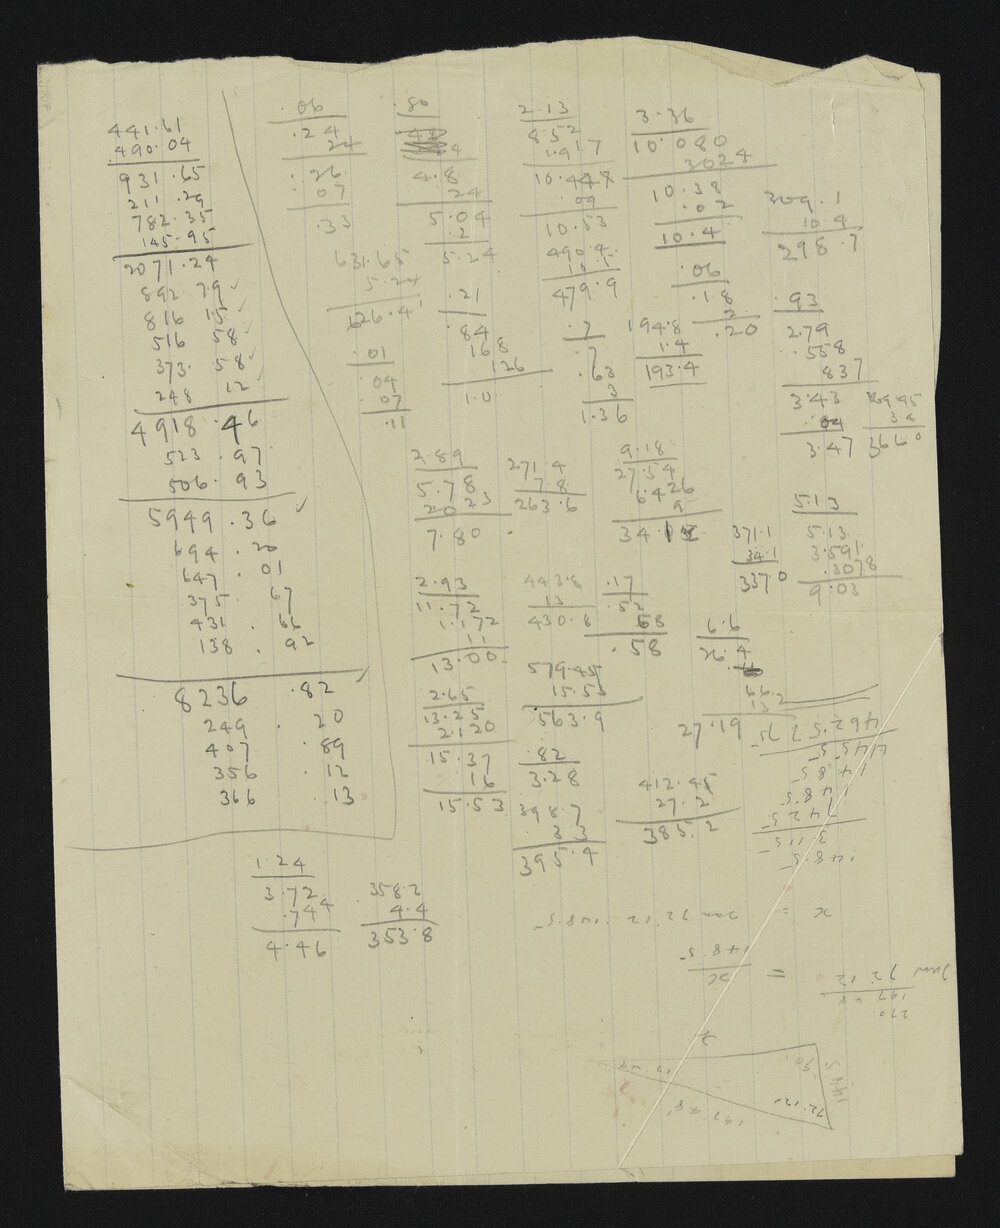 441.61
490.04
931.65
211.29
782.35
145.95
2071.24
892 79
816 15
516 58
373. 58
248 12
4918.46
523.97
506.93
5949.36
694.20
647.01
375.67
431.66
138.92
8236.82
249.20
407.89
356.12
366.13
.06
.24
24
.26
07
.33
631.65
5.24
626.4
.01
.04
.07
.11
.86
4.8
24
5.04
.2
5.24
.21
.84
168
126
1.0
2.89
5.78
2023
7.80
2.93
11.72
1.172
11
13.00
2.65
13.25
2.120
15.37
16
15.53
2.13
8.52
1.917
10.447
.09
10.53
490.4
479.9
.7
.7
.63
3
1.36
271.4
7.8
263.6
443.8
13
430.8
579.45
15.5
563.9
.82
3.28
398.7
3.3
395.4
3.36
10.080
3024
10.38
.02
10.4
.06
.18
2
.20
194.8
1.4
193.4
9.18
27.54
6.426
9
34.1
.17
.52
68
.58
6.6
26.4
66
13 2
27.19
412.45
27.2
385.2
309.1
10.4
298.7
.93
2.79
.558
837
3.43
.04
3.47
369.45
3.4
3660
5.13
5.13
3.591
.3078
9.03
371.1
34.1
337.0
1.24
3.72
.744
4.46
358.2
4.4
353.8
148.5
3115
7425
148.5
x
=
tan 72.12
148.5
x
148.5
=
tan 72.12
270
197 48
x
90
148.5
72.12
197.48